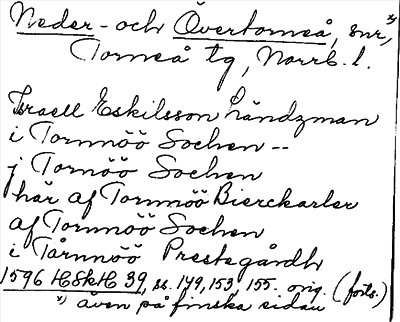 Neder- och Övertorneå, snr, *)
Torneå tg, Norrb. l.
Israell Eskilsson Ländzman
i Tornnöö Sochen --
j Tornöö Sochen
här af Tornnöö Bierckarler
af Tornnöö Sochen
i Tårnnöö Prestegårdh
1596 HSkH 39, ss. 149, 153, 155. orig. (forts.)
*) även på finska sidan